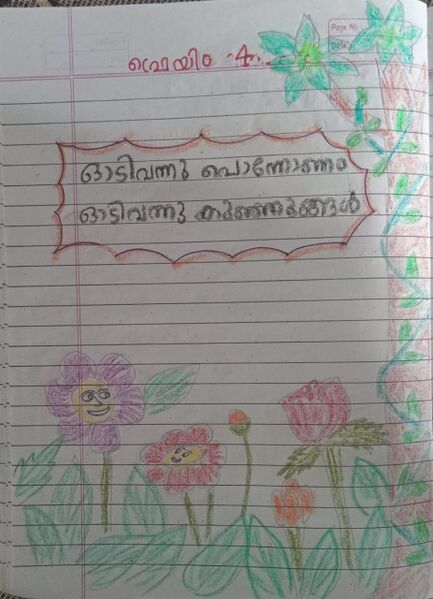 ഫ്രെയിം -4
Page No
Date
ഓടിവന്നു പൊന്നോണം
ഓടിവന്നു കുഞ്ഞുങ്ങൾ